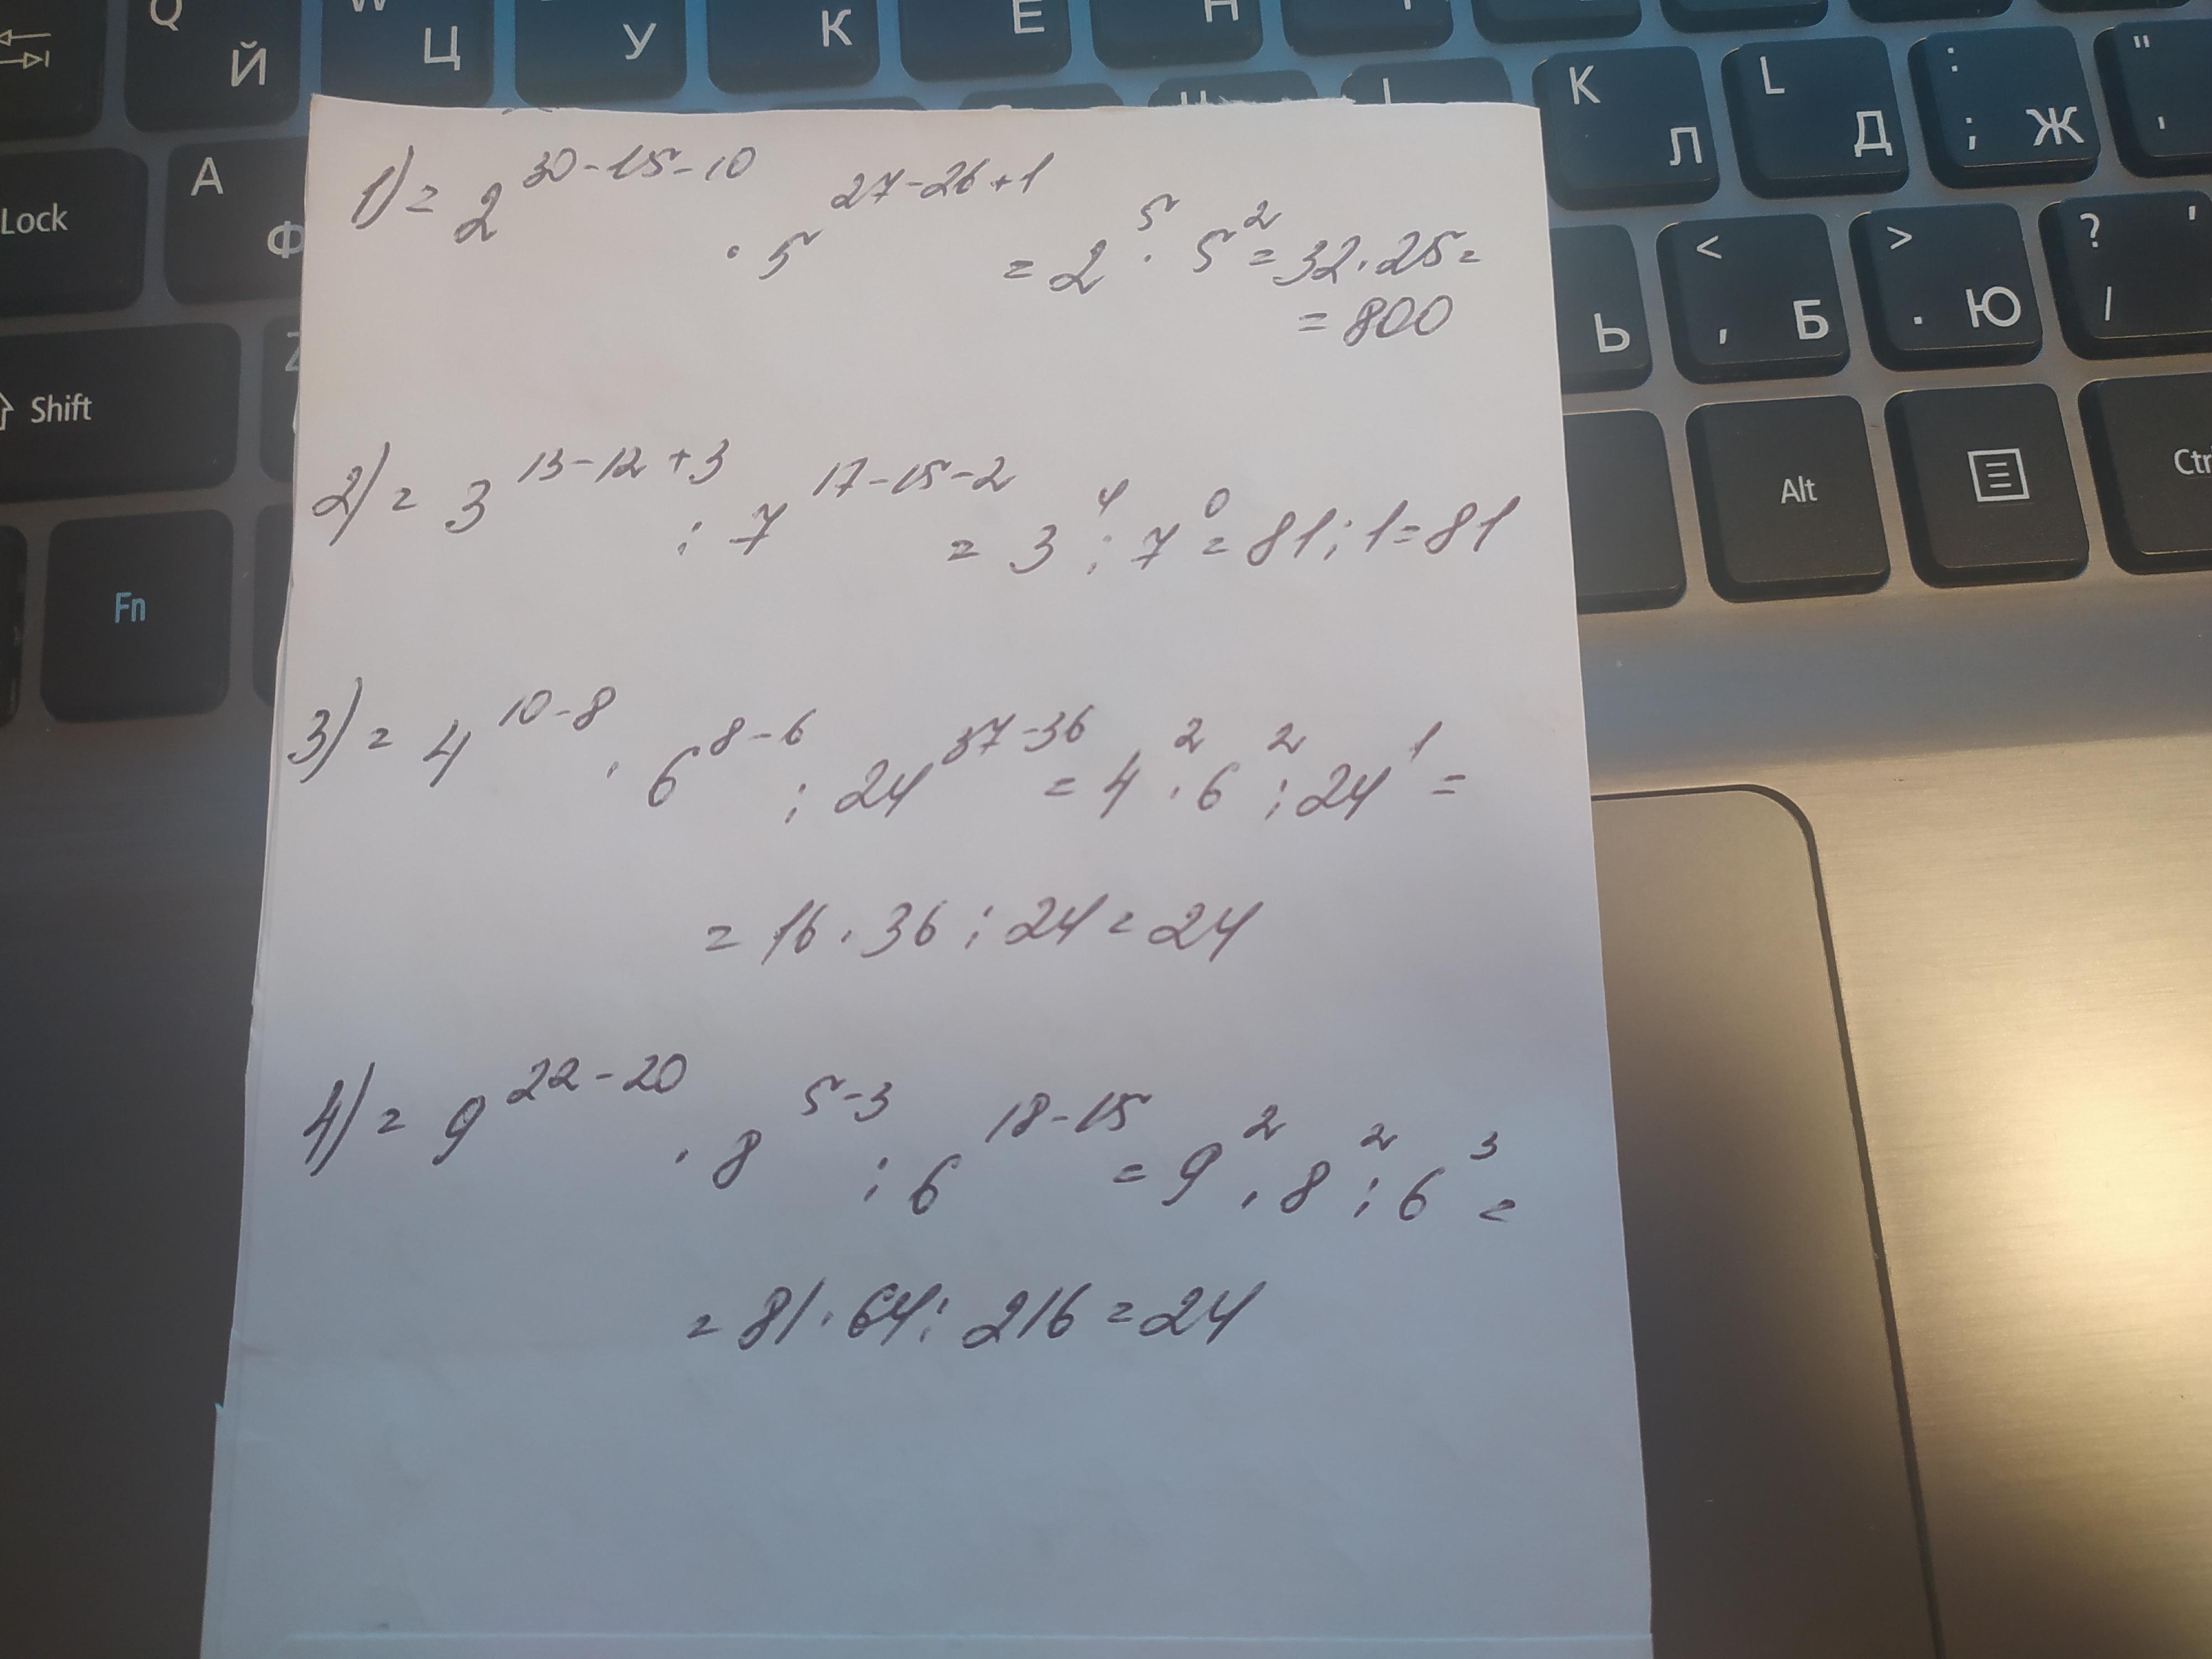 Q W E H
Й Ц У К
A K Л L Д : ; Ж " '
Lock Ф
Z Ь < , Б > . Ю ? / '
Shift
Fn Alt Ctr
1) = 2^{30-15-10} · 5^{27-26+1} = 2^5 · 5^2 = 32 · 25 =
= 800
2) = 3^{13-12+3} : 7^{17-15-2} = 3^4 : 7^0 = 81 : 1 = 81
3) = 4^{10-8} · 6^{8-6} : 24^{37-36} = 4^2 · 6^2 : 24^1 =
= 16 · 36 : 24 = 24
4) = 9^{22-20} · 8^{5-3} : 6^{18-15} = 9^2 · 8^2 : 6^3 =
= 81 · 64 : 216 = 24